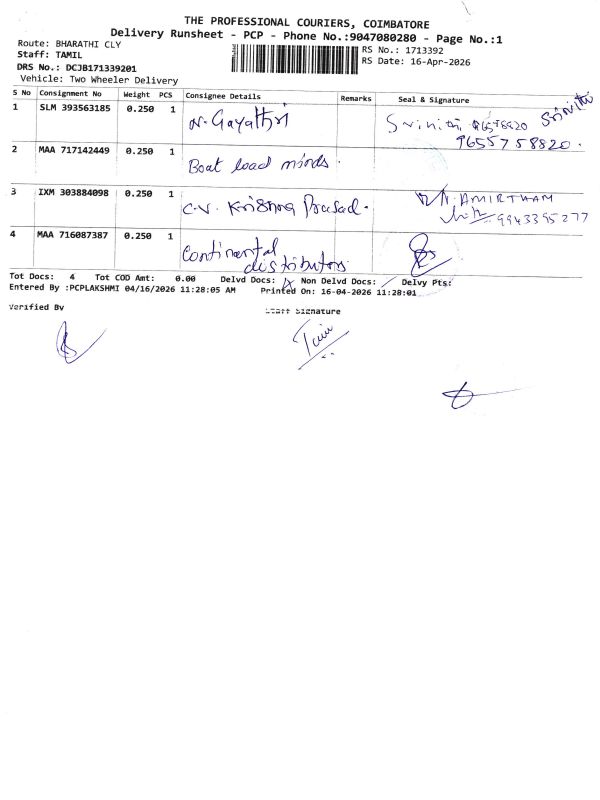 THE PROFESSIONAL COURIERS, COIMBATORE
Delivery Runsheet - PCP - Phone No.:9047080280 - Page No.:1
Route: BHARATHI CLY
RS No.: 1713392
Staff: TAMIL
RS Date: 16-Apr-2026
DRS No.: DCJB171339201
Vehicle: Two Wheeler Delivery
S No Consignment No Weight PCS Consignee Details Remarks Seal & Signature
1 SLM 393563185 0.250 1 N. Gayathri Srinithi Srinithi
9655758820.
2 MAA 717142449 0.250 1 Boat load minds.
3 IXM 303884098 0.250 1 C.V. Krishna Prasad. AMIRTHAM
9943395277
4 MAA 716087387 0.250 1 Continental
distributors
Tot Docs: 4 Tot COD Amt: 0.00 Delvd Docs: Non Delvd Docs: Delvy Pts:
Entered By :PCPLAKSHMI 04/16/2026 11:28:05 AM Printed On: 16-04-2026 11:28:01
Verified By Staff Signature